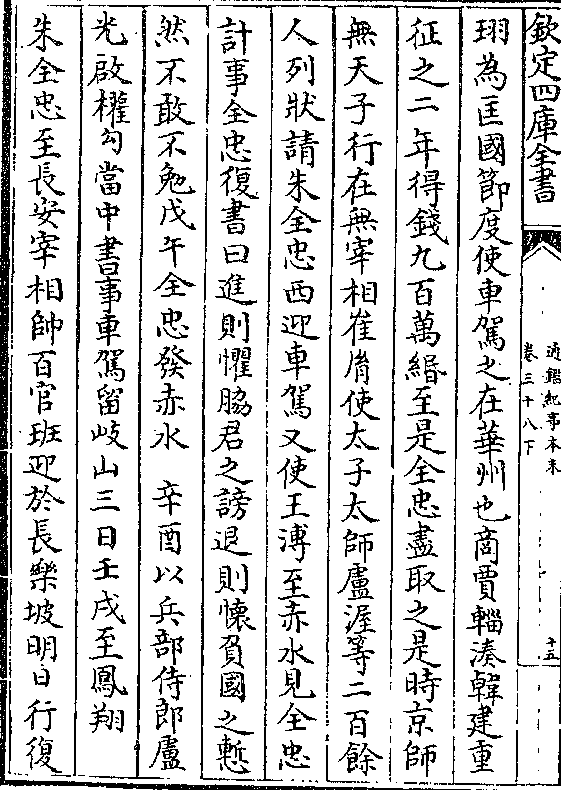 欽定四庫全書
通鑑紀事本末
卷三十八下
十五
珝為匡國節度使車駕之在華州也商賈輻湊韓建重
征之二年得錢九百萬緡至是全忠盡取之是時京師
無天子行在無宰相崔胤使太子太師盧渥等二百餘
人列狀請朱全忠西迎車駕又使王溥至赤水見全忠
計事全忠復書曰進則懼脇君之謗退則懷負國之慙
然不敢不勉戊午全忠發赤水　辛酉以兵部侍郎盧
光啟權勾當中書事車駕留岐山三日壬戌至鳳翔
朱全忠至長安宰相帥百官班迎於長樂坡明日行復